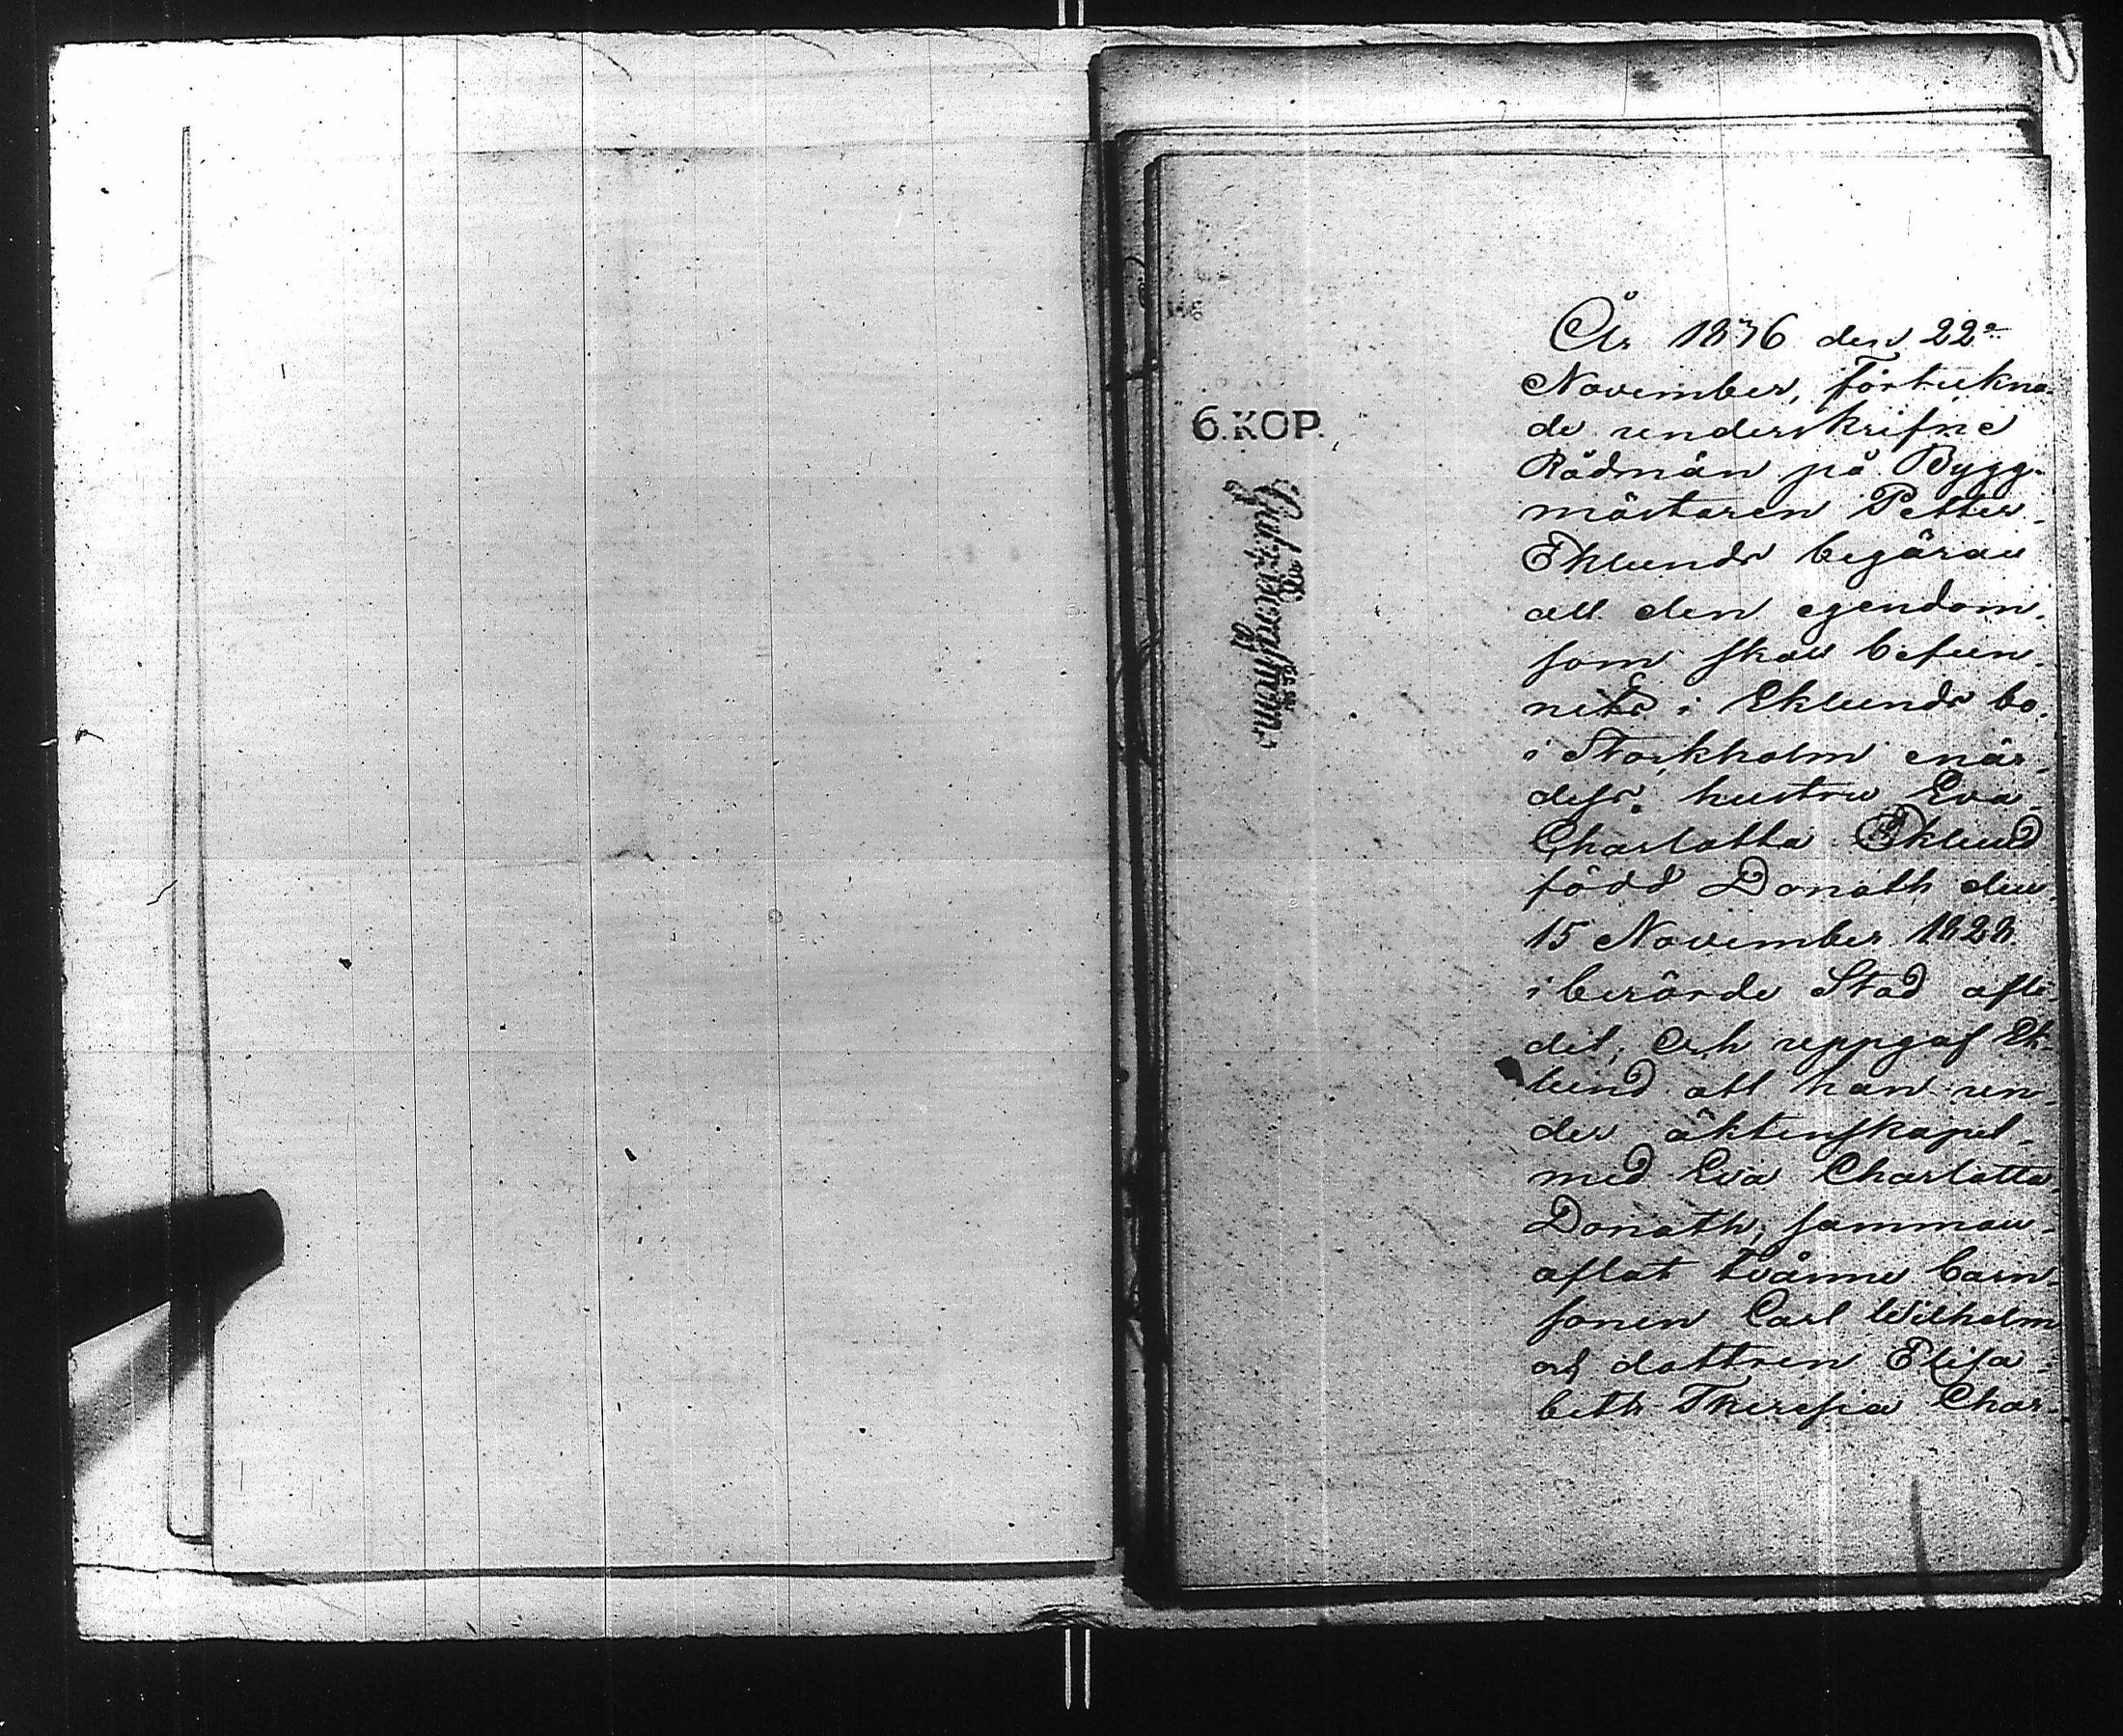 År 1876 den 22a
November, förteckna-
de underskrifne
Rådmän på Bygg-
mästaren Petter
Eklunds begäran
all den egendom
som skall befun-
nits i Eklunds bo
i Stockholm enär
dess hustru Eva
Charlotta Eklund
född Donath den
15 November 1828
i berörde Stad afli-
dit, och uppgaf Ek-
lund att han un-
der äktenskapet
med Eva Charlotta
Donath, samman-
aflat tvänne barn
sonen Carl Wilhelm
och dottren Elisa-
beth Theresia Char-
6.KOP.